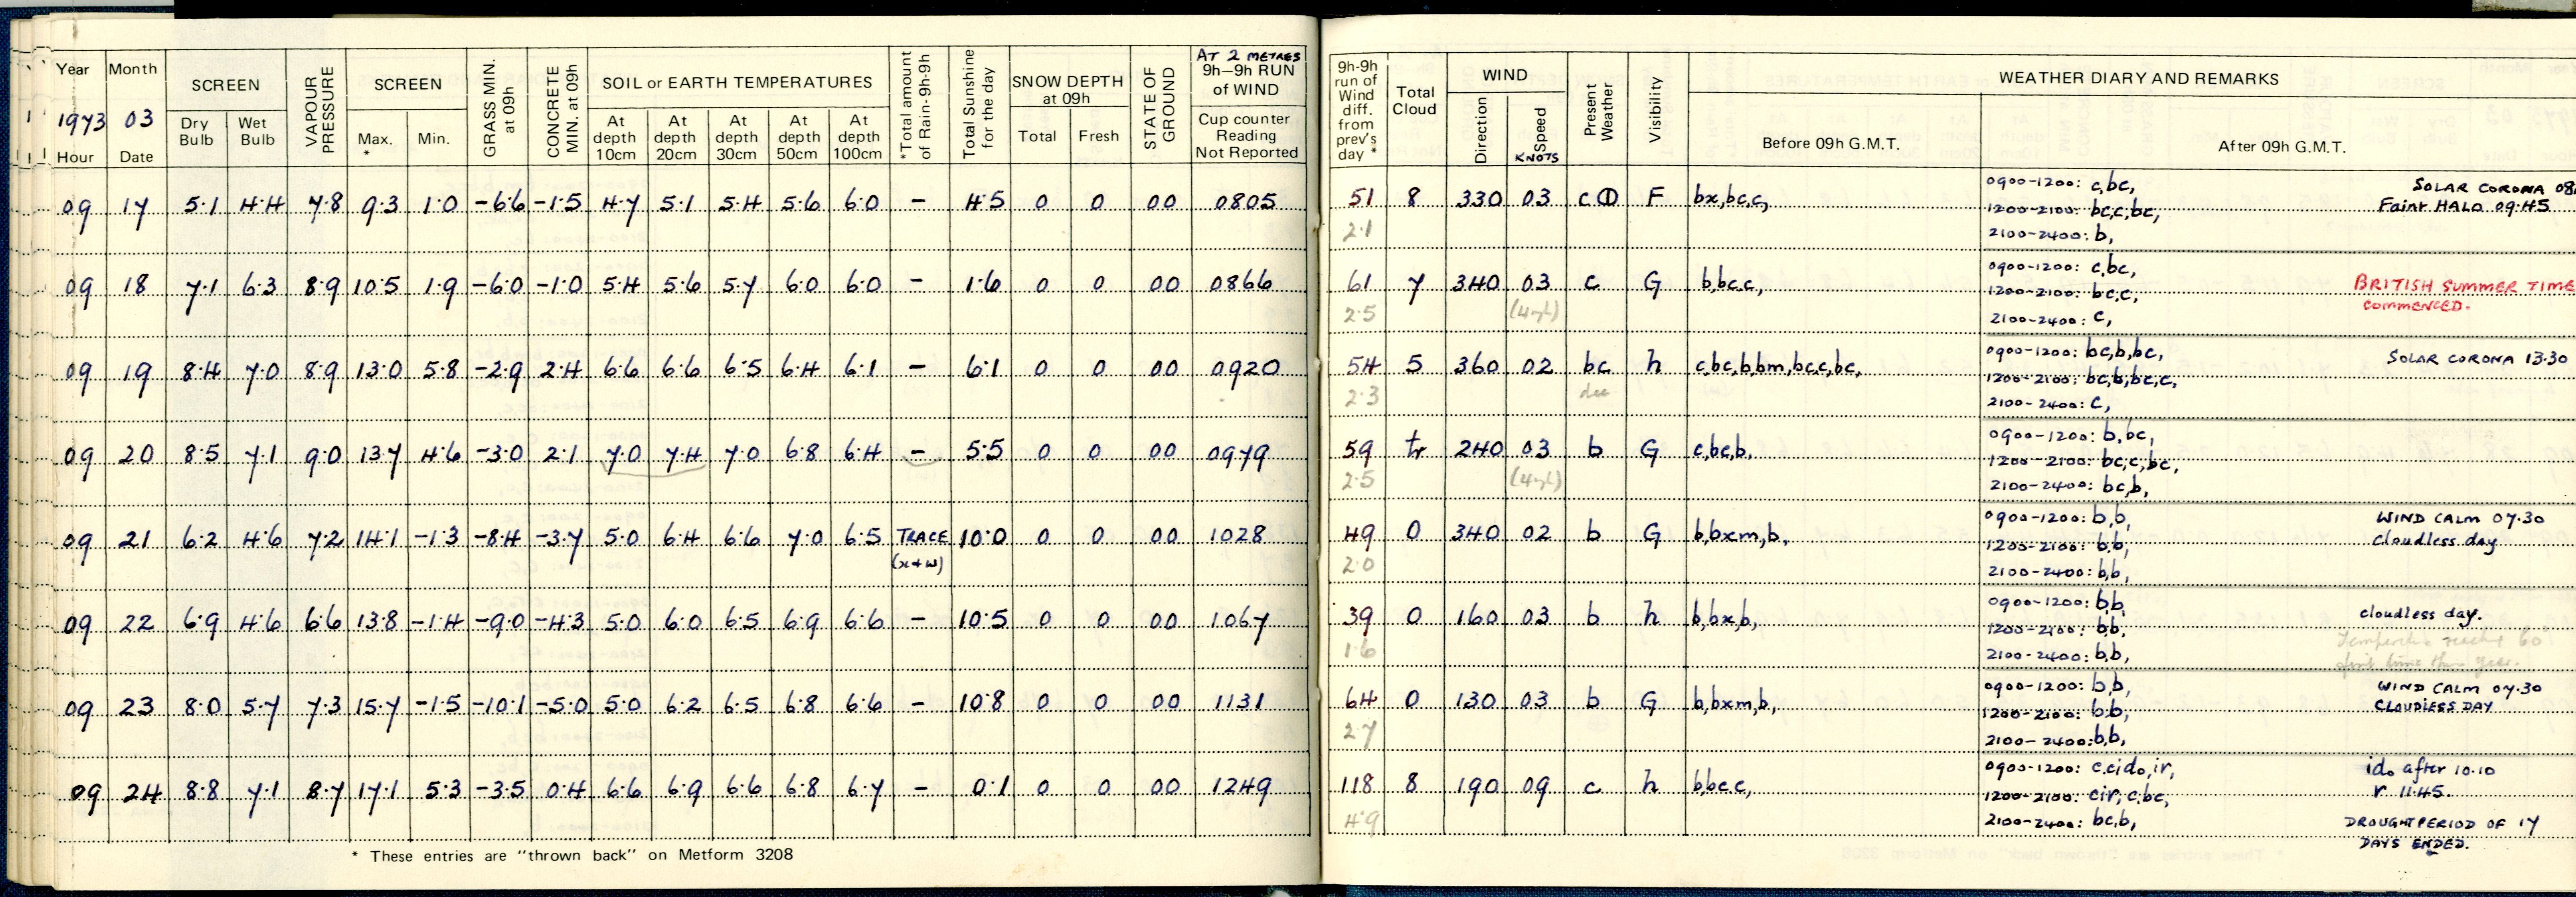 Year Month SCREEN VAPOUR PRESSURE SCREEN GRASS MIN. at 09h CONCRETE MIN. at 09h SOIL or EARTH TEMPERATURES *Total amount of Rain-9h-9h Total Sunshine for the day SNOW DEPTH at 09h STATE OF GROUND AT 2 METRES 9h–9h RUN of WIND
1973 03 Dry Bulb Wet Bulb Max. * Min. At depth 10cm At depth 20cm At depth 30cm At depth 50cm At depth 100cm Total Fresh Cup counter Reading Not Reported
Hour Date
09 17 5.1 4.4 7.8 9.3 1.0 -6.6 -1.5 4.7 5.1 5.4 5.6 6.0 - 4.5 0 0 00 0805
09 18 7.1 6.3 8.9 10.5 1.9 -6.0 -1.0 5.4 5.6 5.7 6.0 6.0 - 1.6 0 0 00 0866
09 19 8.4 7.0 8.9 13.0 5.8 -2.9 2.4 6.6 6.6 6.5 6.4 6.1 - 6.1 0 0 00 0920
09 20 8.5 7.1 9.0 13.7 4.6 -3.0 2.1 7.0 7.4 7.0 6.8 6.4 - 5.5 0 0 00 0979
09 21 6.2 4.6 7.2 14.1 -1.3 -8.4 -3.7 5.0 6.4 6.6 7.0 6.5 TRACE 10.0 0 0 00 1028
(x+w)
09 22 6.9 4.6 6.6 13.8 -1.4 -9.0 -4.3 5.0 6.0 6.5 6.9 6.6 - 10.5 0 0 00 1067
09 23 8.0 5.7 7.3 15.7 -1.5 -10.1 -5.0 5.0 6.2 6.5 6.8 6.6 - 10.8 0 0 00 1131
09 24 8.8 7.1 8.7 17.1 5.3 -3.5 0.4 6.6 6.9 6.6 6.8 6.7 - 0.1 0 0 00 1249
* These entries are "thrown back" on Metform 3208
9h-9h run of Wind diff. from prev's day * Total Cloud WIND Direction Speed KNOTS Present Weather Visibility WEATHER DIARY AND REMARKS
Before 09h G.M.T. After 09h G.M.T.
51 8 330 03 c⦶ F bx,bc,c, 0900-1200: c,bc, SOLAR CORONA 08
1200-2100: bc,c,bc, Faint HALO 09.45
2.1 2100-2400: b,
61 7 340 03 c G b,bc,c, 0900-1200: c,bc, BRITISH SUMMER TIME
1200-2100: bc,c, COMMENCED.
2.5 2100-2400: c,
54 5 360 02 bc h c,bc,b,bm,bc,c,bc, 0900-1200: bc,b,bc, SOLAR CORONA 13.30
dew 1200-2100: bc,b,bc,c,
2.3 2100-2400: c,
59 tr 240 03 b G c,bc,b, 0900-1200: b,bc,
1200-2100: bc,c,bc,
2.5 2100-2400: bc,b,
49 0 340 02 b G b,bxm,b, 0900-1200: b,b, WIND CALM 07.30
1200-2100: b,b, Cloudless day
2.0 2100-2400: b,b,
39 0 160 03 b h b,bx,b, 0900-1200: b,b, cloudless day.
1200-2100: b,b, 60°
1.6 2100-2400: b,b, first time this year.
64 0 130 03 b G b,bxm,b, 0900-1200: b,b, WIND CALM 07.30
1200-2100: b,b, CLOUDLESS DAY
2.7 2100-2400: b,b,
118 8 190 09 c h b,bc,c, 0900-1200: c,cido,ir, ido after 10.10
1200-2100: cir,c,bc, r 11.45.
4.9 2100-2400: bc,b, DROUGHT PERIOD OF 17
DAYS ENDED.